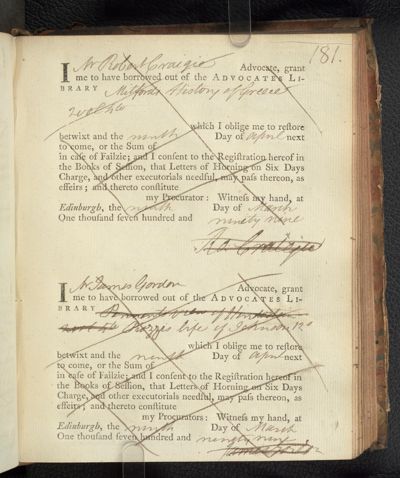 181.
I Mr Robert Craigie Advocate, grant
me to have borrowed out of the ADVOCATES LI-
BRARY Mitfords History of Greece
2 vol 4to
which I oblige me to reſtore
betwixt and the ninth Day of April next
to come, or the Sum of
in caſe of Failzie; and I conſent to the Regiſtration hereof in
the Books of Seſſion, that Letters of Horning on Six Days
Charge, and other executorials needful, may paſs thereon, as
effeirs; and thereto conſtitute
my Procurator: Witneſs my hand, at
Edinburgh, the ninth Day of March
One thouſand ſeven hundred and
ninety nine
Ro. Craigie
I Mr James Gordon Advocate, grant
me to have borrowed out of the ADVOCATES LI-
BRARY Pennants View of
2 vol 4to life of 12o
which I oblige me to reſtore
betwixt and the ninth Day of April next
to come, or the Sum of
in caſe of Failzie; and I conſent to the Regiſtration hereof in
the Books of Seſſion, that Letters of Horning on Six Days
Charge, and other executorials needful, may paſs thereon, as
effeirs; and thereto conſtitute
my Procurators: Witneſs my hand, at
Edinburgh, the ninth Day of March
One thouſand ſeven hundred and ninety nine
James Gordon